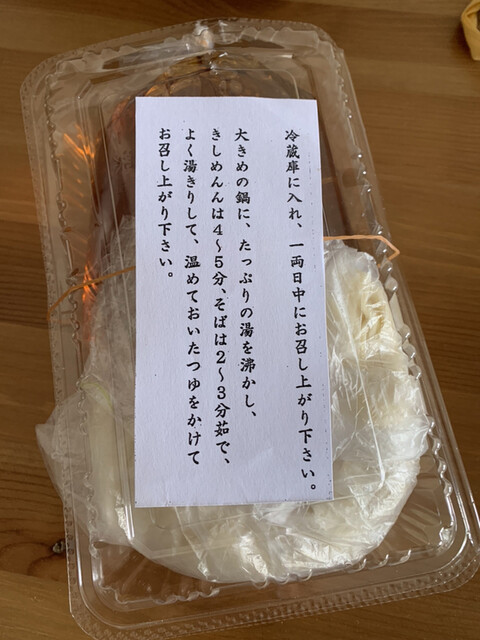 冷蔵庫に入れ、一両日中にお召し上がり下さい。
大きめの鍋に、たっぷりの湯を沸かし、
きしめんんは４～５分、そばは２～３分茹で、
よく湯きりして、温めておいたつゆをかけて
お召し上がり下さい。